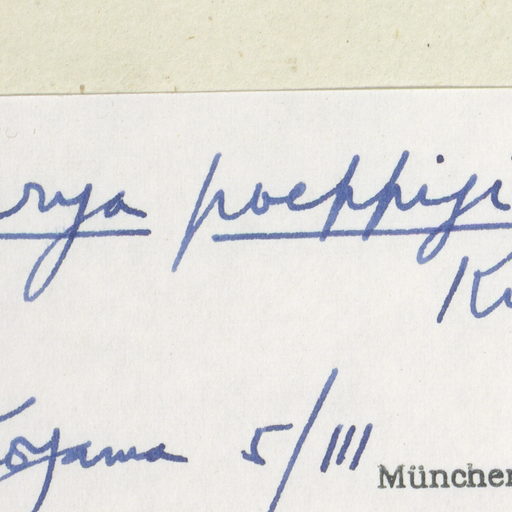 rya poeppigi
Ku
Koyama 5/III München